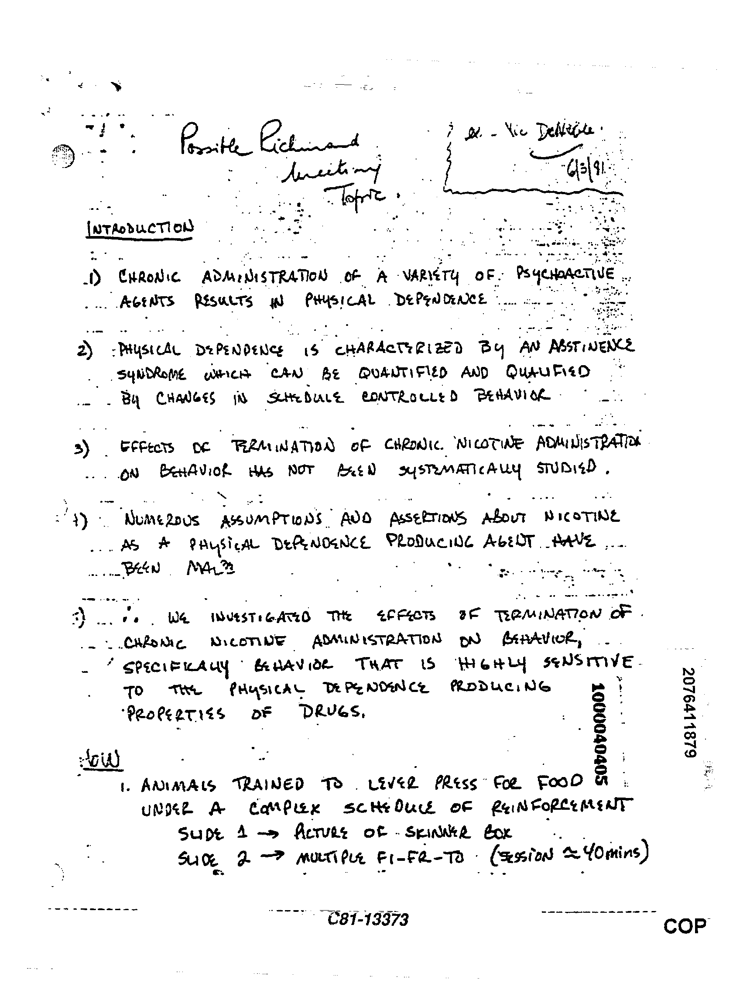 Possible Richmond
Meeting
Topic.
Vic DeNoble
6/3/81
INTRODUCTION
1) CHRONIC ADMINISTRATION OF A VARIETY OF PSYCHOACTIVE
AGENTS RESULTS IN PHYSICAL DEPENDENCE
2) PHYSICAL DEPENDENCE IS CHARACTERIZED BY AN ABSTINENCE
SYNDROME WHICH CAN BE QUANTIFIED AND QUALIFIED
BY CHANGES IN SCHEDULE CONTROLLED BEHAVIOR
3) EFFECTS OF TERMINATION OF CHRONIC NICOTINE ADMINISTRATION
ON BEHAVIOR HAS NOT BEEN SYSTEMATICALLY STUDIED.
4) NUMEROUS ASSUMPTIONS AND ASSERTIONS ABOUT NICOTINE
AS A PHYSICAL DEPENDENCE PRODUCING AGENT HAVE
BEEN
5) ∴ WE INVESTIGATED THE EFFECTS OF TERMINATION OF
CHRONIC NICOTINE ADMINISTRATION ON BEHAVIOR,
SPECIFICALLY BEHAVIOR THAT IS HIGHLY SENSITIVE
TO THE PHYSICAL DEPENDENCE PRODUCING
PROPERTIES OF DRUGS.
1000040405
2076411879
HOW
1. ANIMALS TRAINED TO LEVER PRESS FOR FOOD
UNDER A COMPLEX SCHEDULE OF REINFORCEMENT
SLIDE 1 → PICTURE OF SKINNER BOX
SLIDE 2 → MULTIPLE FI-FR-TO (SESSION ≈ 40mins)
C81-13373
COP